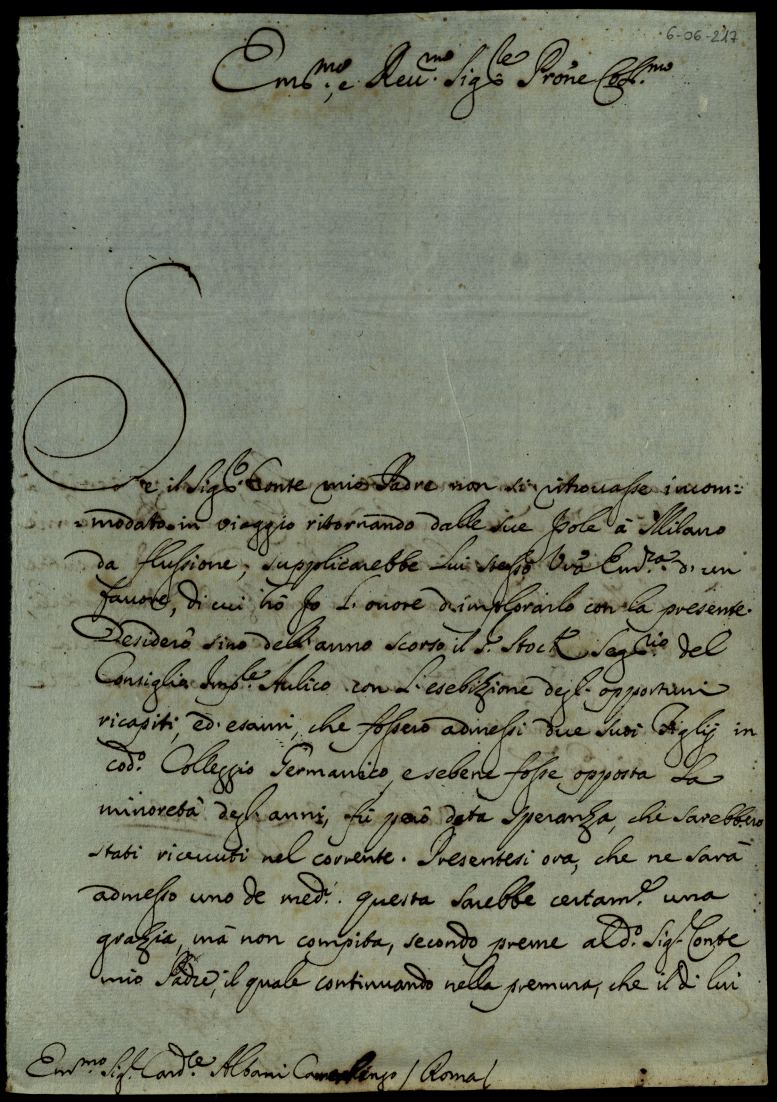 6-06-217
Em.mo, e Reu.mo Sig.re Prõne Coll.mo
Se il Sig.r Conte mio Padre non si ritrouasse incom=
=modato in viaggio ritornando dalle sue Isole à Milano
da flussione, supplicarebbe Lui stesso Vrã Em.za d'un
fauore, di cui hò Jo l'onore d'implorarlo con la presente.
Desiderò sino dell'anno scorso il S.r Stock Seg.rio del
Consiglio Imp.le Aulico con l'esebizione degl'opportuni
ricapiti, ed esami, che fossero admessi due suoi Figlij in
cod.o Colleggio Germanico, e sebene fosse opposta la
minoretà degl'anni, fù però data speranza, che sarebbero
stati riceuuti nel corrente. Presentesi ora, che ne sarà
admesso uno de med.i. questa sarebbe certam.te una
grazia, mà non compita, secondo preme al d.o Sig.r Conte
mio Padre, il quale continuando nella premura, che il di lui
Em.mo Sig.r Card.le Albani Camerlengo / Roma /